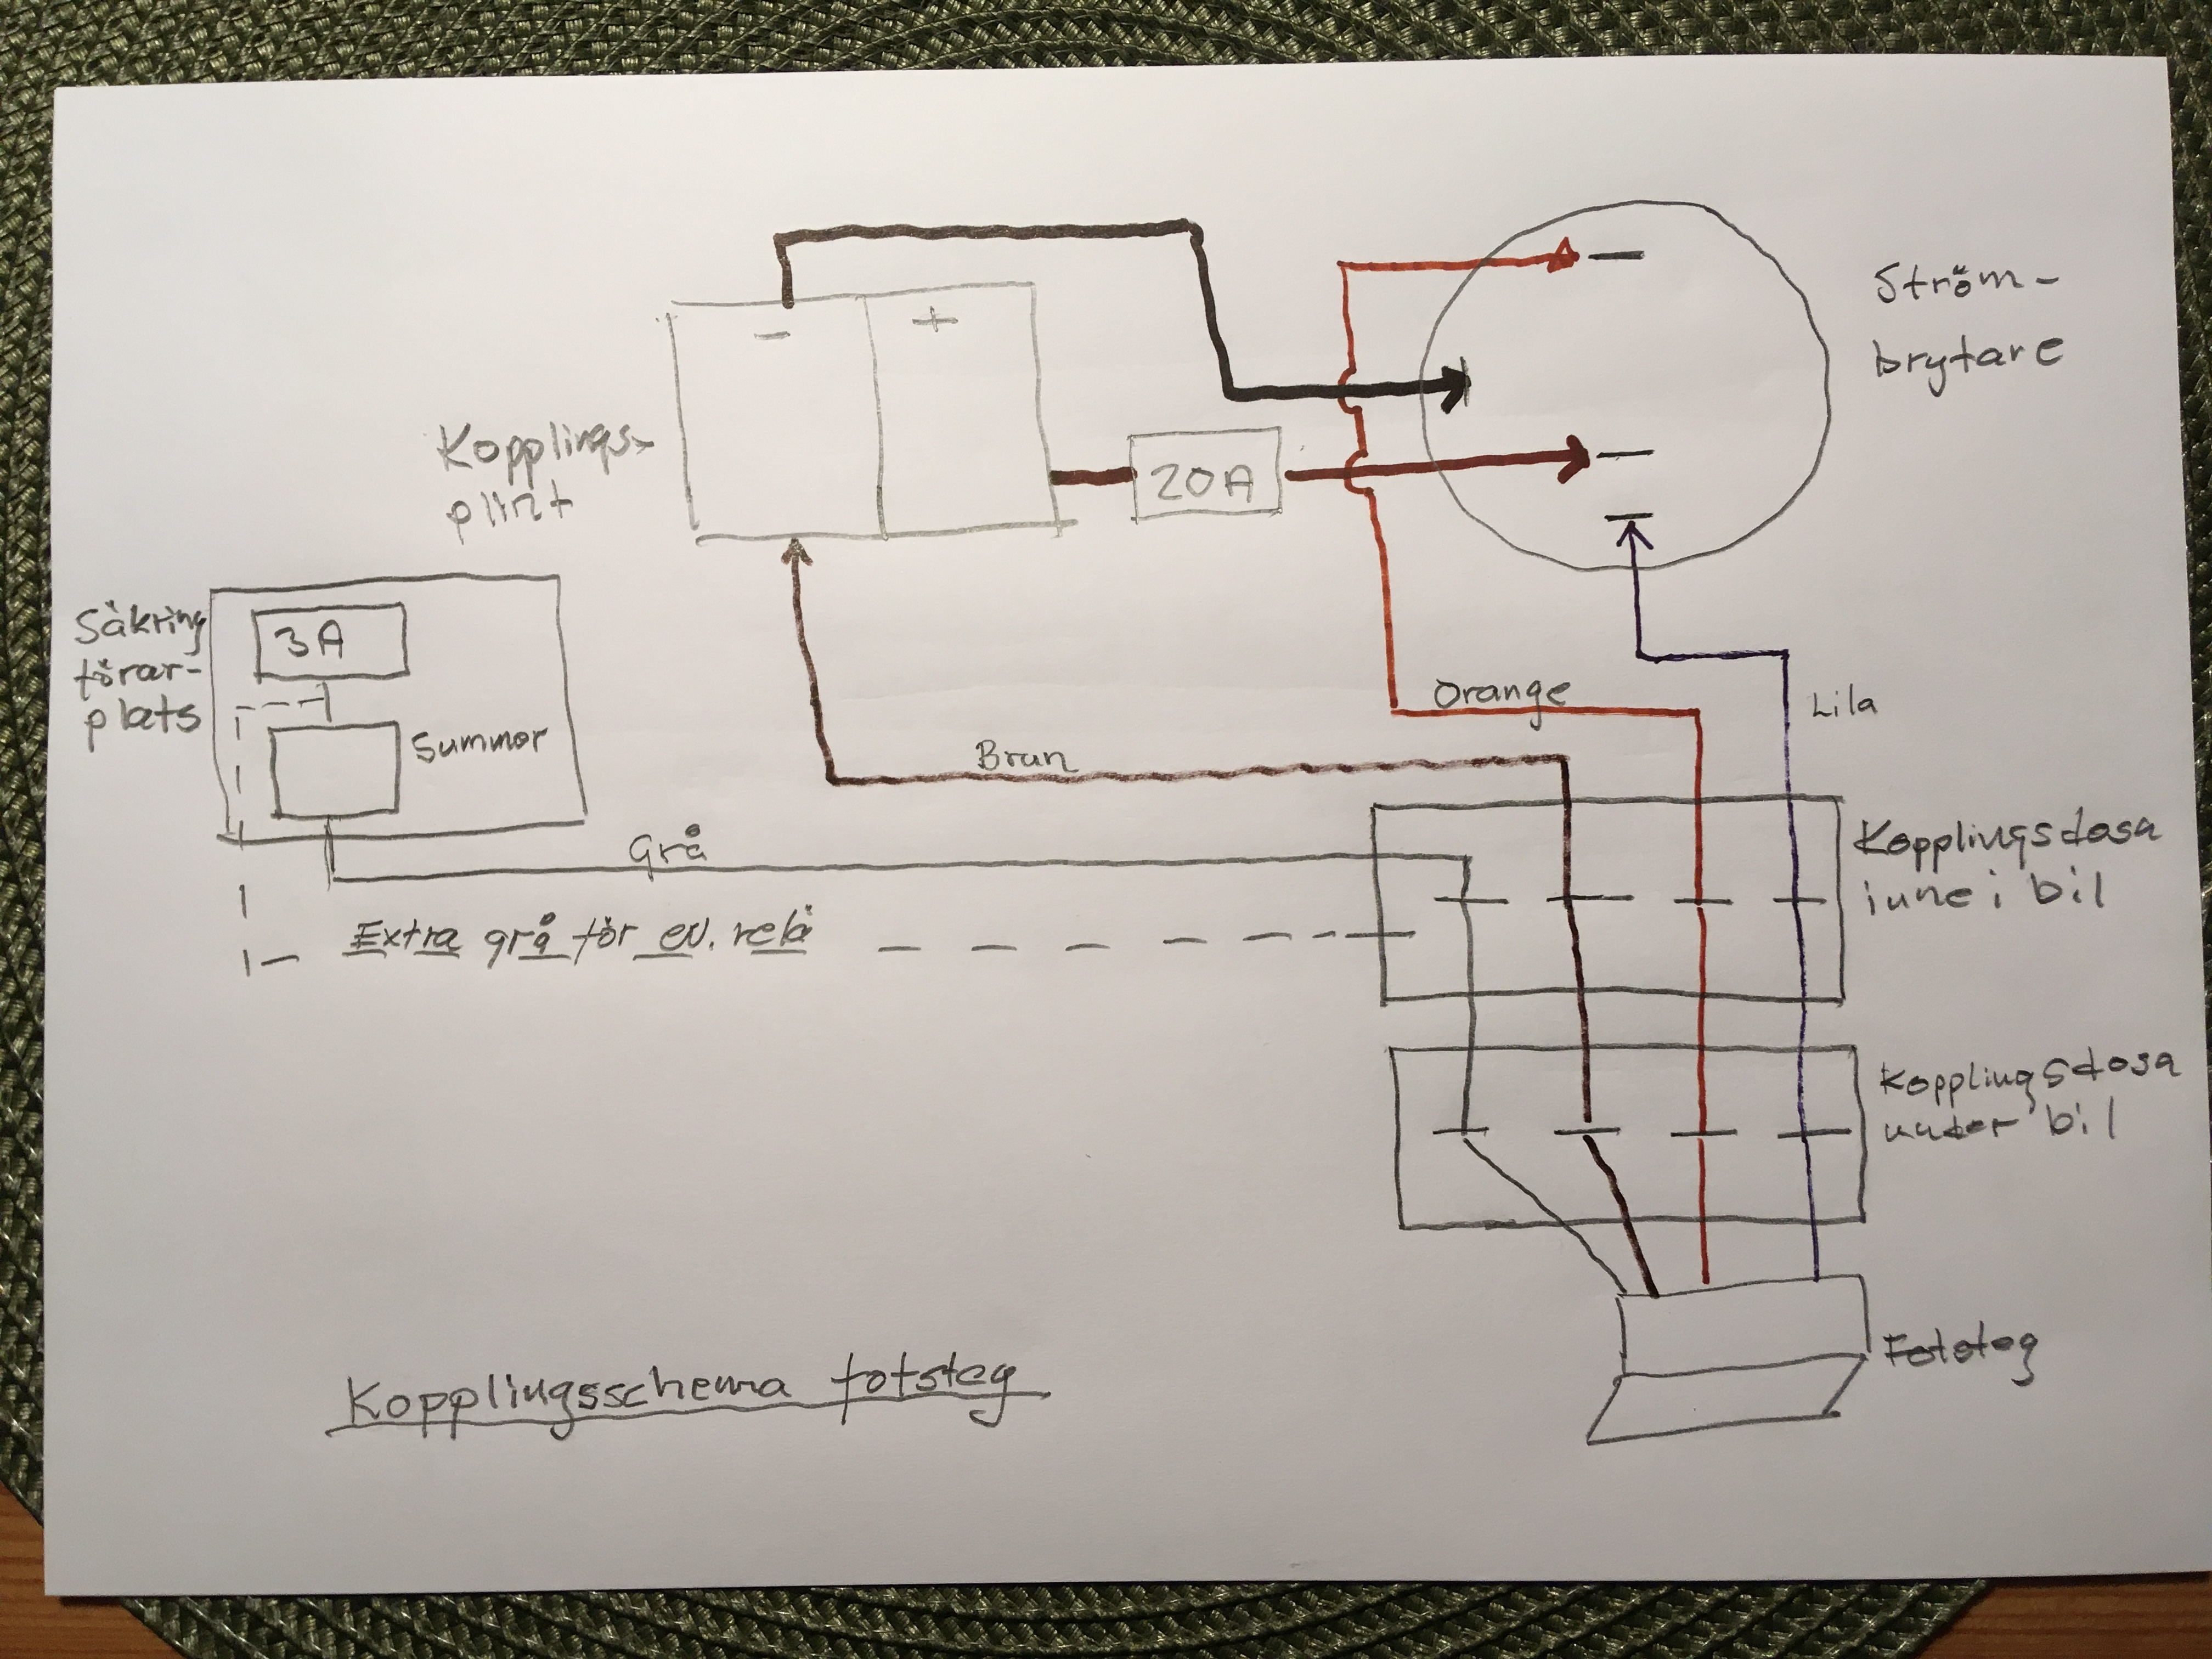 Ström-
brytare
-
+
Kopplings-
plint
20A
Säkring
förar-
plats
3A
Summer
Orange
Lila
Brun
Grå
Kopplingsdosa
inne i bil
Extra grå för ev. relä
Kopplingsdosa
under bil
Fotsteg
Kopplingsschema fotsteg